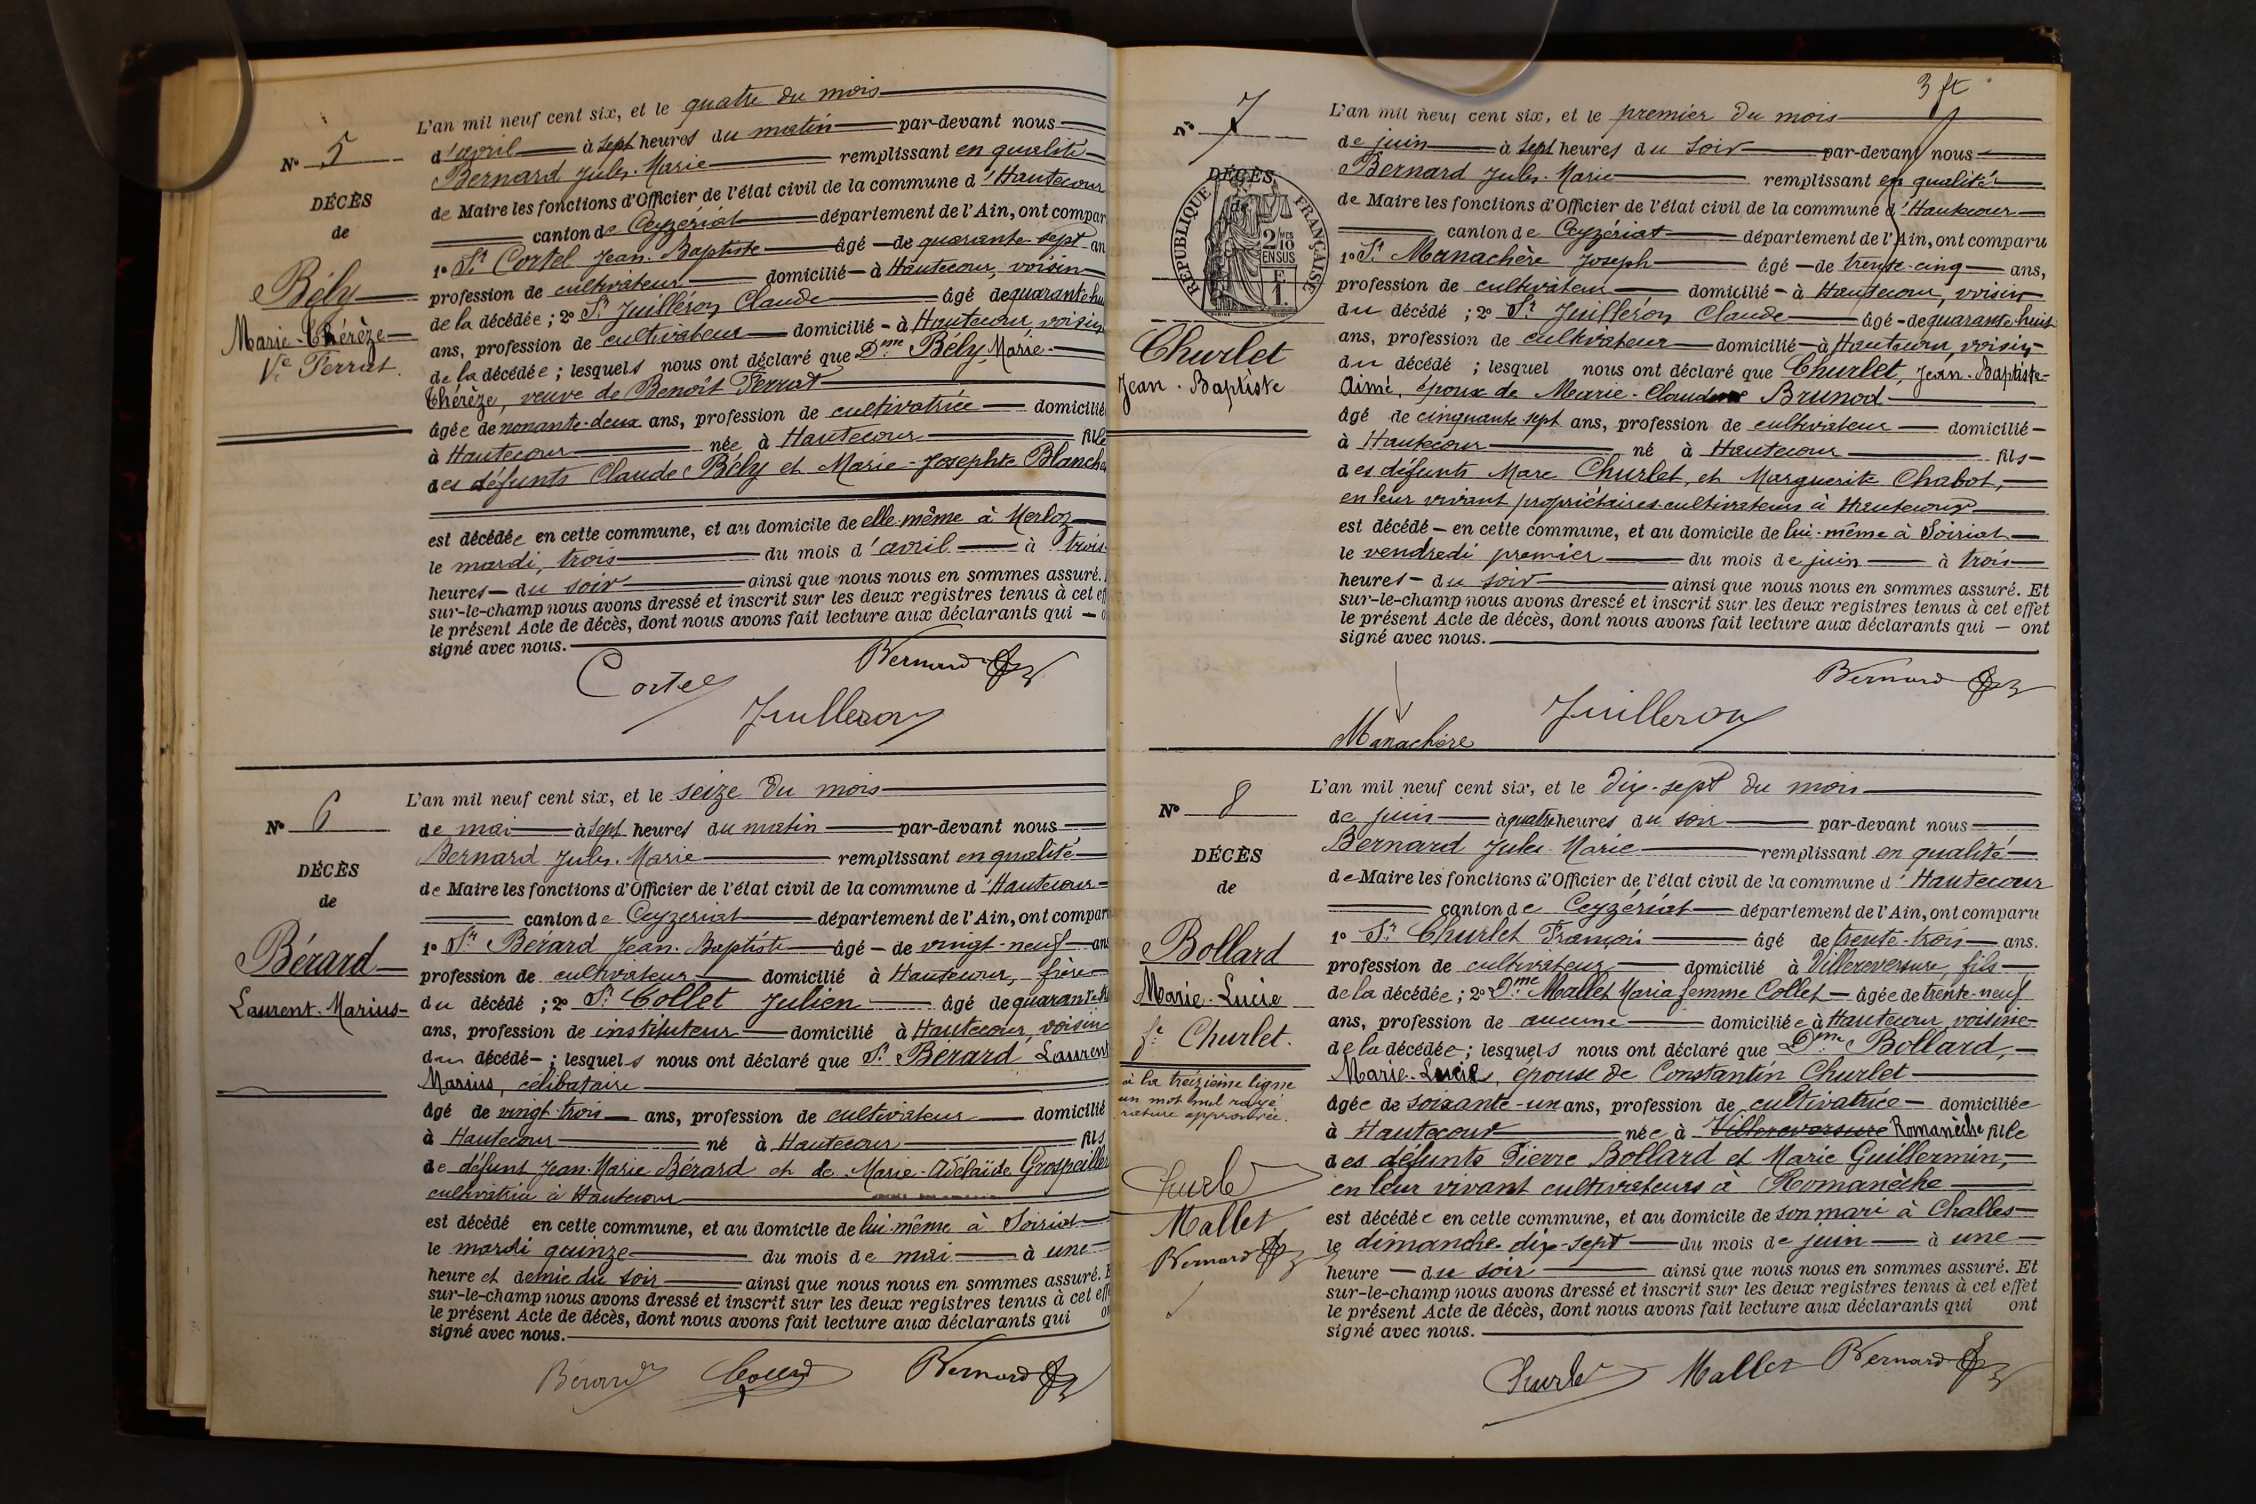 L'an mil neuf cent six, et le quatre du mois
Nº 5
d'avril à sept heures du matin par-devant nous
Bernard Jules-Marie remplissant en qualité
DÉCÈS
de Maire les fonctions d'Officier de l'état civil de la commune d'Hautecour
de
canton de Ceyzériat département de l'Ain, ont compar
1º Sr Cortel Jean-Baptiste âgé de quarante-sept an
Bély
profession de cultivateur domicilié à Hautecour, voisin
Marie-Thérèze
de la décédée; 2º Sr Juilléron Claude âgé de quarante-hu
Ve Ferrat.
ans, profession de cultivateur domicilié à Hautecour, voisin
de la décédée; lesquels nous ont déclaré que Dme Bély Marie-
Thérèze, veuve de Benoît Ferrat
âgée de nonante-deux ans, profession de cultivatrice domicilié
à Hautecour née à Hautecour fille
des défunts Claude Bély et Marie-Josephte Blanche
est décédée en cette commune, et au domicile de elle-même à Merloz
le mardi, trois du mois d'avril à trois
heures du soir ainsi que nous nous en sommes assuré.
sur-le-champ nous avons dressé et inscrit sur les deux registres tenus à cet ef
le présent Acte de décès, dont nous avons fait lecture aux déclarants qui o
signé avec nous.
Bernard
Cortel
Juilleron
L'an mil neuf cent six, et le seize du mois
Nº 6
de mai à sept heures du matin par-devant nous
Bernard Jules-Marie remplissant en qualité
DÉCÈS
de Maire les fonctions d'Officier de l'état civil de la commune d'Hautecour
de
canton de Ceyzériat département de l'Ain, ont compar
1º Sr Bérard Jean-Baptiste âgé de vingt-neuf an
Bérard
profession de cultivateur domicilié à Hautecour, frère
Laurent-Marius
du décédé; 2º Sr Collet Julien âgé de
ans, profession de instituteur domicilié à Hautecour, voisin
du décédé; lesquels nous ont déclaré que Sr Bérard Laurent
Marius, célibataire
âgé de vingt-trois ans, profession de cultivateur domicilié
à Hautecour né à Hautecour fils
de défunt Jean-Marie Bérard et de Marie-Adélaïde Grospellier
cultivatrice à Hautecour
est décédé en cette commune, et au domicile de lui-même à Soiriat
le mardi quinze du mois de mai à une
heure et demie du soir ainsi que nous nous en sommes assuré. E
sur-le-champ nous avons dressé et inscrit sur les deux registres tenus à cet effe
le présent Acte de décès, dont nous avons fait lecture aux déclarants qui on
signé avec nous.
Bérard Collet Bernard
3 ft
Nº 7
L'an mil neuf cent six, et le premier du mois
de juin à sept heures du soir par-devant nous
DÉCÈS
Bernard Jules-Marie remplissant en qualité
RÉPUBLIQUE FRANÇAISE
de
2/10 EN SUS
de Maire les fonctions d'Officier de l'état civil de la commune d'Hautecour
canton de Ceyzériat département de l'Ain, ont comparu
1º Sr Manachère Joseph âgé de trente-cinq ans,
profession de cultivateur domicilié à Hautecour, voisin
du décédé; 2º Sr Juilléron Claude âgé de quarante-huit
Churlet
ans, profession de cultivateur domicilié à Hautecour, voisin
Jean-Baptiste
du décédé; lesquel nous ont déclaré que Churlet, Jean-Baptiste-
Aimé, époux de Marie-Claudine Brunod
âgé de cinquante sept ans, profession de cultivateur domicilié
à Hautecour né à Hautecour fils
des défunts Marc Churlet, et Marguerite Chabot,
en leur vivant propriétaires-cultivateurs à Hautecour
est décédé en cette commune, et au domicile de lui-même à Soiriat
le vendredi premier du mois de juin à trois
heures du soir ainsi que nous nous en sommes assuré. Et
sur-le-champ nous avons dressé et inscrit sur les deux registres tenus à cet effet
le présent Acte de décès, dont nous avons fait lecture aux déclarants qui ont
signé avec nous.
Bernard
Juilleron
Manachère
L'an mil neuf cent six, et le dix-sept du mois
Nº 8
de juin à quatre heures du soir par-devant nous
Bernard Jules-Marie remplissant en qualité
DÉCÈS
de Maire les fonctions d'Officier de l'état civil de la commune d'Hautecour
de
canton de Ceyzériat département de l'Ain, ont comparu
1º Sr Churlet François âgé de trente-trois ans.
Bollard
profession de cultivateur domicilié à Villereversure, fils
Marie-Lucie
de la décédée; 2º Dme Mallet Maria femme Collet âgée de trente-neuf
fe Churlet.
ans, profession de aucune domiciliée à Hautecour voisine
de la décédée; lesquels nous ont déclaré que Dme Bollard,
Marie-Lucie, épouse de Constantin Churlet
à la treizième ligne
un mot nul rayé
rature approuvée.
âgée de soixante-un ans, profession de cultivatrice domiciliée
à Hautecour née à Villereversure Romanèche fille
des défunts Pierre Bollard et Marie Guillermin,
en leur vivant cultivateurs à Romanèche
Churle
Mallet
Bernard
est décédée en cette commune, et au domicile de son mari à Challes
le dimanche dix-sept du mois de juin à une
heure du soir ainsi que nous nous en sommes assuré. Et
sur-le-champ nous avons dressé et inscrit sur les deux registres tenus à cet effet
le présent Acte de décès, dont nous avons fait lecture aux déclarants qui ont
signé avec nous.
Churle Mallet Bernard